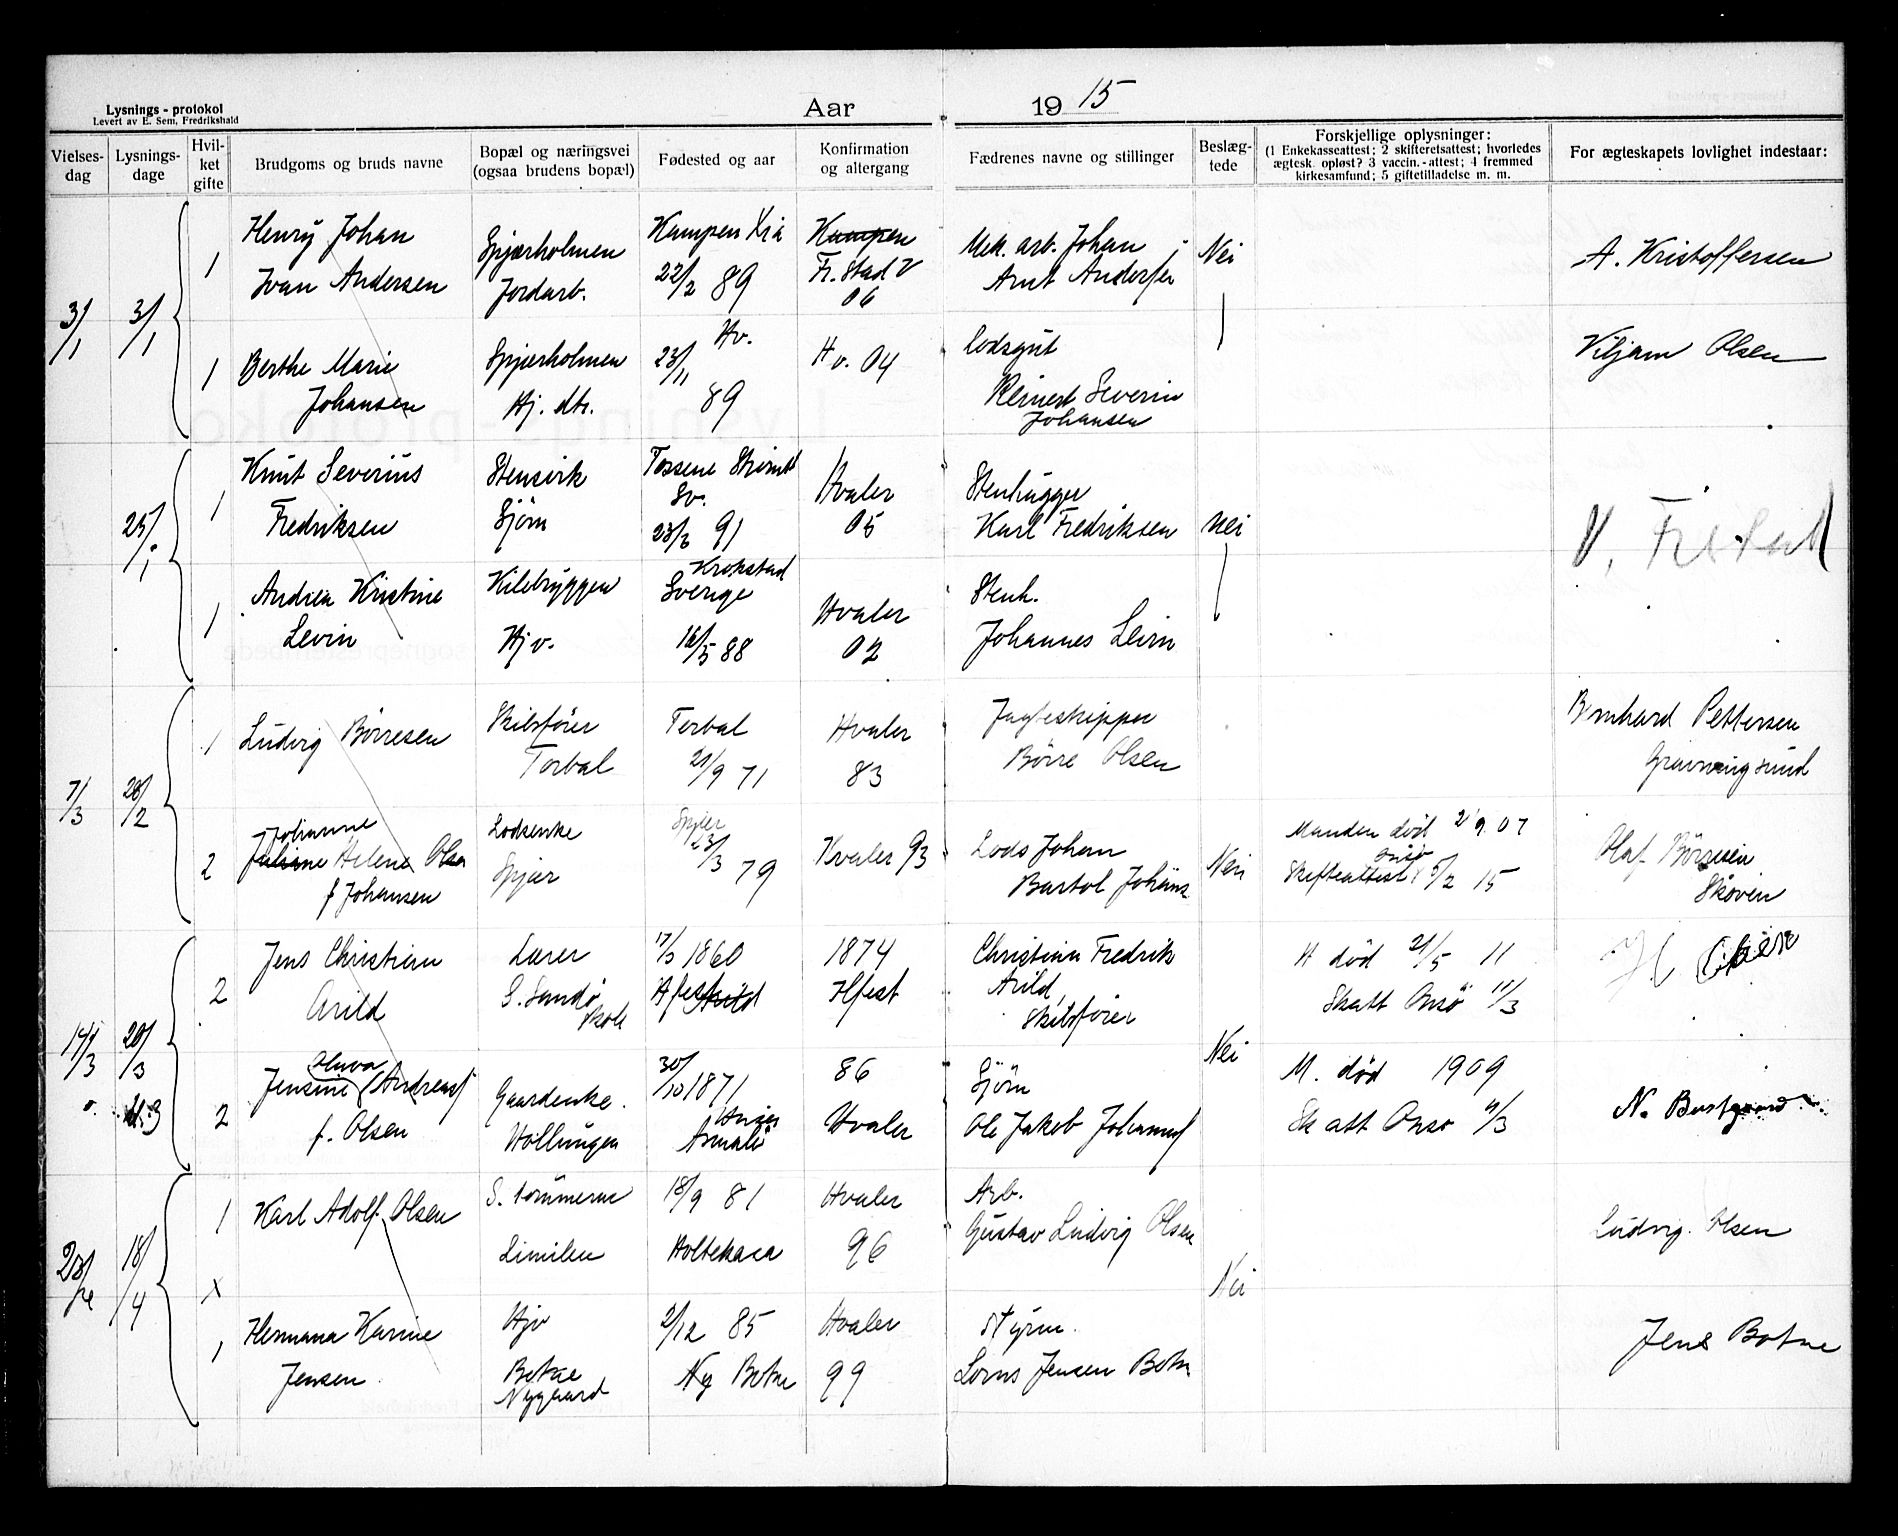 Lysnings - protokol
Levert av E. Sem, Fredrikshald
Aar 1915
Vielses-dag | Lysnings-dage | Hvil-ket gifte | Brudgoms og bruds navne | Bopæl og næringsvei (ogsaa brudens bopæl) | Fødested og aar | Konfirmation og altergang | Fædrenes navne og stillinger | Beslæg-tede | Forskjellige oplysninger: (1 Enkekasseattest; 2 skifteretsattest; hvorledes ægtesk. opløst? 3 vaccin.-attest; 4 fremmed kirkesamfund; 5 giftetilladelse m. m. | For ægteskapets lovlighet indestaar:
3/1 3/1
1 Henry Johan Spjærholmen Kampen Kria Kampen Mek. arb. Johan Nei A. Kristoffersen
Ivan Andersen Jordarb. 22/2 89 Fr.stad V 06 Arnt Andersen
1 Berthe Marie Spjærholmen 23/11 Hv. Hv. 04 Lodsgut Viljam Olsen
Johansen Hj. dtr. 89 Reinert Severin
Johansen
25/1
1 Knut Severius Tossene Hvaler Stenhugger
Fredriksen Sjöm Sv. 91 05 Karl Fredriksen Nei
1 Andrea Kristine Kilebryggen Krokstad Sverige Hvaler Stenh.
Levin Hjv. 16/5 88 02 Johannes Levin
7/3 28/2
1 Ludvig Börresen Skibsförer Torbal Hvaler Jagteskipper Bernhard Pettersen
Torbal 21/9 71 83 Börre Olsen Gravningsund
Johanne Lodsenke Spjær Manden död 2/9 07
2 Juliane Helene Olsen Spjær 23/3 79 Hvaler 93 Lods Johan Nei Skifteattest Onsö 5/2 15 Olaf Börresen
f Johansen Bartol Johans Skoven
14/3 20/3
2 Jens Christian Lærer 17/3 1860 1874 Christian Fredrik H död 21/5 11
Arild S. Sandö skole Arild Skatt Onsö 11/3
Skibsförer
Oluva 30/10 1871 86 Nei M. död 1909
2 Jensine Andreas Gaardenke Sjöm Sk att Onsö 4/3
f. Olsen Asmalö Hvaler Ole Jakob Johannes
18/4
1 Karl Adolf Olsen 18/9 81 Hvaler Arb. Ludvig Olsen
Holtekasa 96 Gustav Ludvig Olsen
x Nei
1 Hermana Karine Hjv 2/12 85 Hvaler Styrm. Jens Botne
Jensen Botne Nygaard Ny Botne 99 Lorns Jensen Botn